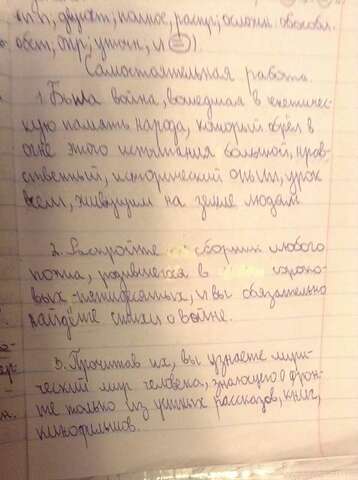 п, двусост; полное, распр; осложн. обособл.
обст, опр; уточн, и
Самостоятельная работа.
1. Была война, вошедшая в генетичес-
кую память народа, который обрёл в
огне этого испытания большой, нрав-
ственный, исторический опыт, урок
всем, живущим на земле людям
2. Раскройте сборник любого
поэта, родившегося в сороко-
вых-пятидесятых, и вы обязательно
найдёте стихи о войне.
3. Прочитав их, вы узнаете лири-
ческий мир человека, знающего о фрон-
те только из устных рассказов, книг,
кинофильмов.